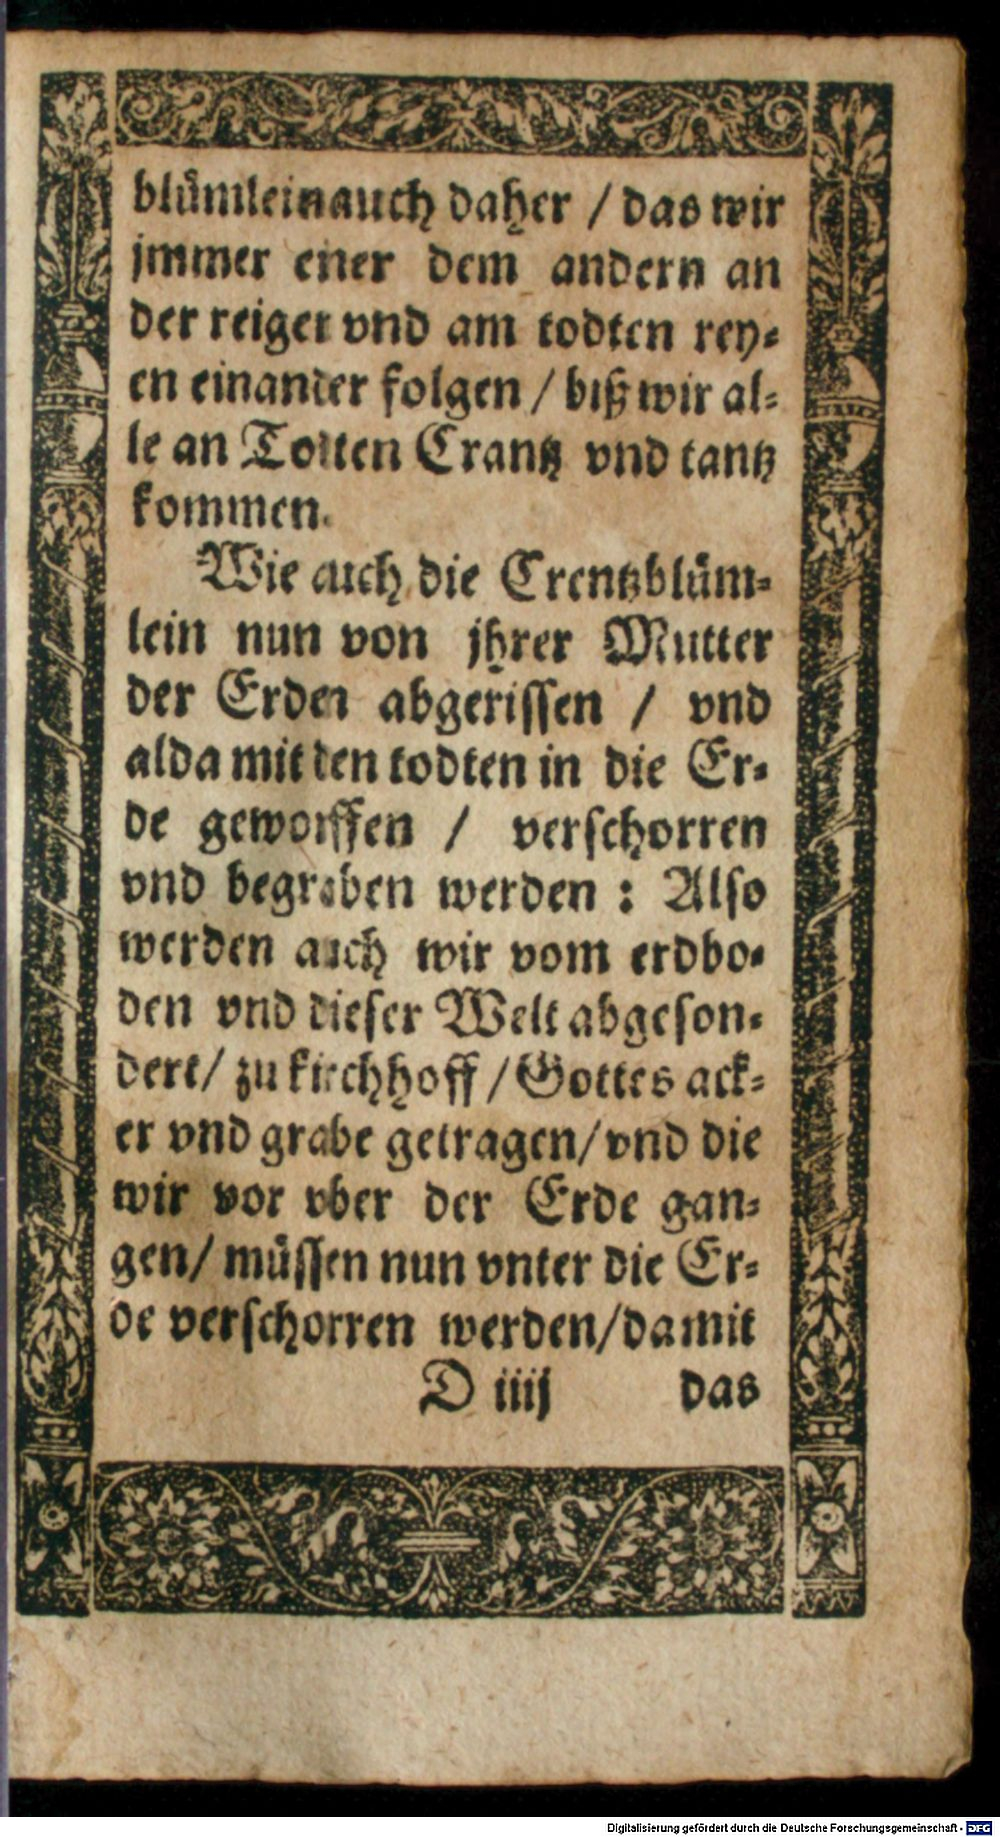 blümleinauch daher / das wir
jmmer einer dem andern an
der reigen vnd am todten rey-
en einander folgen / biß wir al-
le an Todten Crantz vnd tantz
kommen.
Wie auch die Crentzblüm-
lein nun von jhrer Mutter
der Erden abgerissen / vnd
alda mit den todten in die Er-
de geworffen / verschorren
vnd begraben werden : Also
werden auch wir vom erdbo-
den vnd dieser Welt abgeson-
dert/ zu kirchhoff / Gottes ack-
er vnd grabe getragen/ vnd die
wir vor vber der Erde gan-
gen/ müssen nun vnter die Er-
de verschorren werden/damit
D iiij das
Digitalisierung gefördert durch die Deutsche Forschungsgemeinschaft - DFG